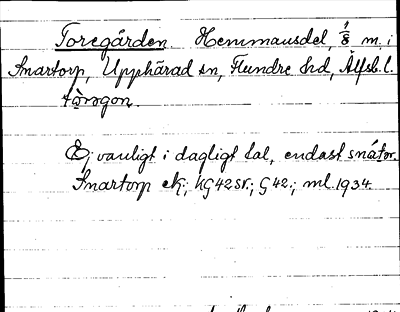 Toregården. Hemmansdel, 1/8 m. i
Snartorp, Upphärad sn, Flundre hd, Älfsb. l.
Ej vanligt i dagligt tal, endast snátor.
Snartorp ek; kG 42 sr.; G 42.; ml. 1934.